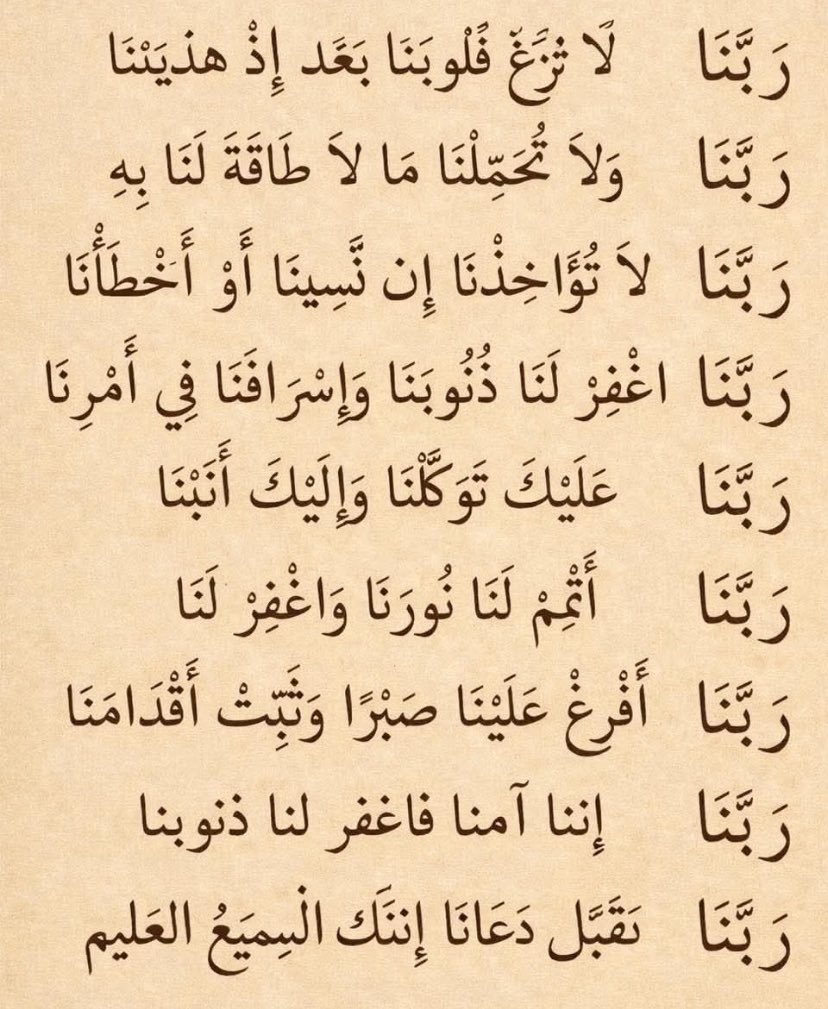 رَبَّنَا لَا تُزَغّْ قُلوبَنَا بَعَّد إِذْ هذيَتْنَا
رَبَّنَا وَلاَ تُحَمِّلْنَا مَا لاَ طَاقَةَ لَنَا بِهِ
رَبَّنَا لاَ تُؤَاخِذْنَا إِن نَّسِينَا أَوْ أَخْطَأْنَا
رَبَّنَا اغْفِرْ لَنَا ذُنُوبَنَا وَإِسْرَافَنَا فِي أَمْرِنَا
رَبَّنَا عَلَيْكَ تَوَكَّلْنَا وَإِلَيْكَ أَنَبْنَا
رَبَّنَا أَتْمِمْ لَنَا نُورَنَا وَاغْفِرْ لَنَا
رَبَّنَا أَفْرِغْ عَلَيْنَا صَبْرًا وَثَبِّتْ أَقْدَامَنَا
رَبَّنَا إِننا آمنا فاغفر لنا ذنوبنا
رَبَّنَا تَقَبَّل دَعَانَا إِننَّك الْسِميَعُ العَليم